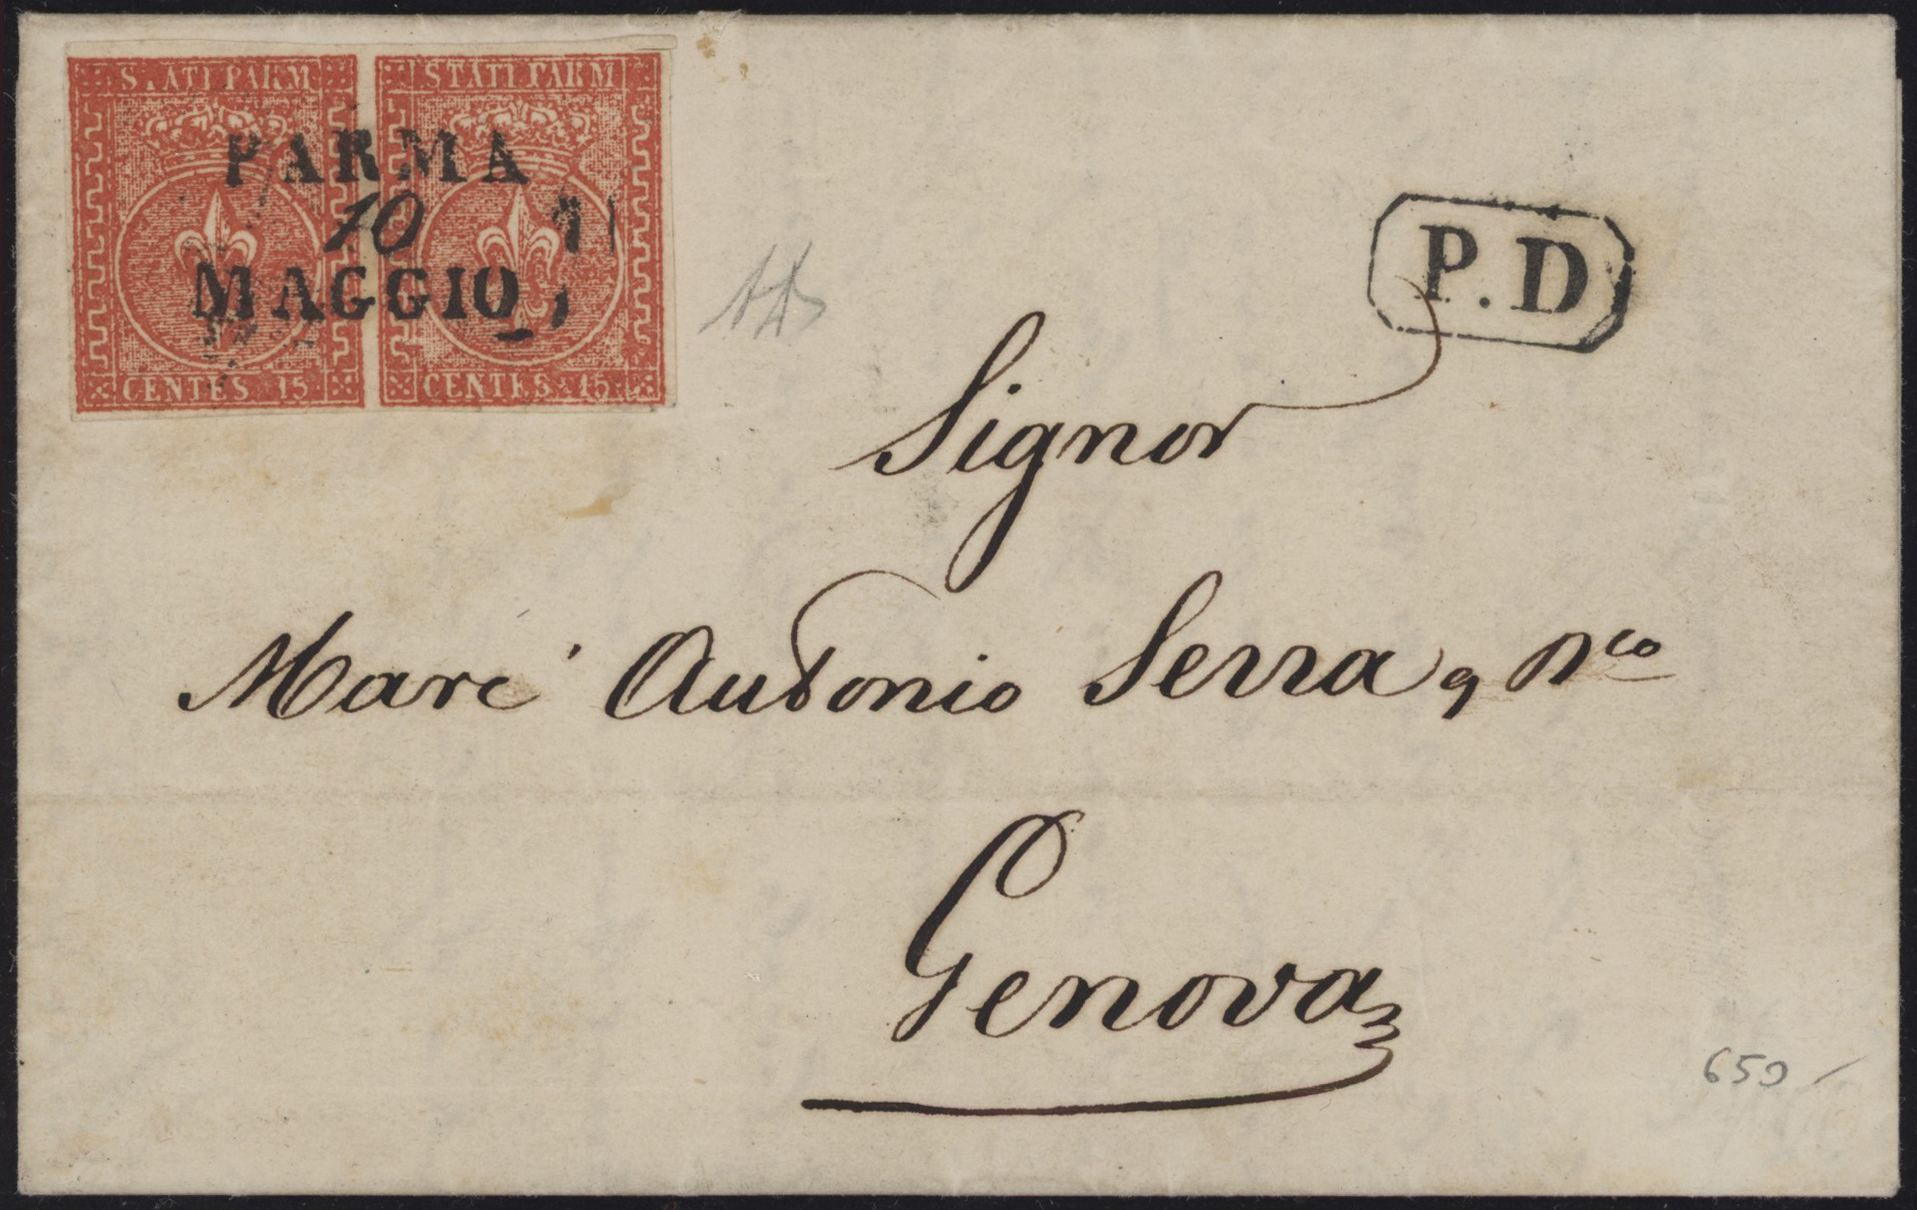 S. ATI PARM STATI PARM
PARMA
10
MAGGIO
CENTES. 15 CENTES. 15
P.D
Signor
Marc' Antonio Serra, q
Genova
650